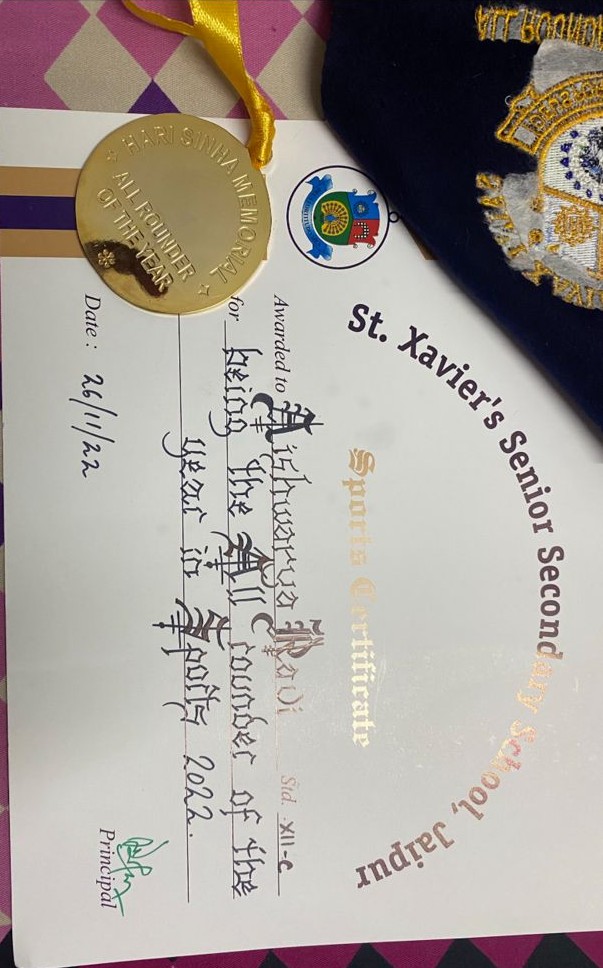 St. Xavier's Senior Secondary School, Jaipur
Sports Certificate
Awarded to Aishwarya Ravi Std. XII-C
for being the All rounder of the
year in Sports 2022.
Date : 26/11/22
Principal
HARI SINHA MEMORIAL
ALL ROUNDER
OF THE YEAR
ALL ROUNDER